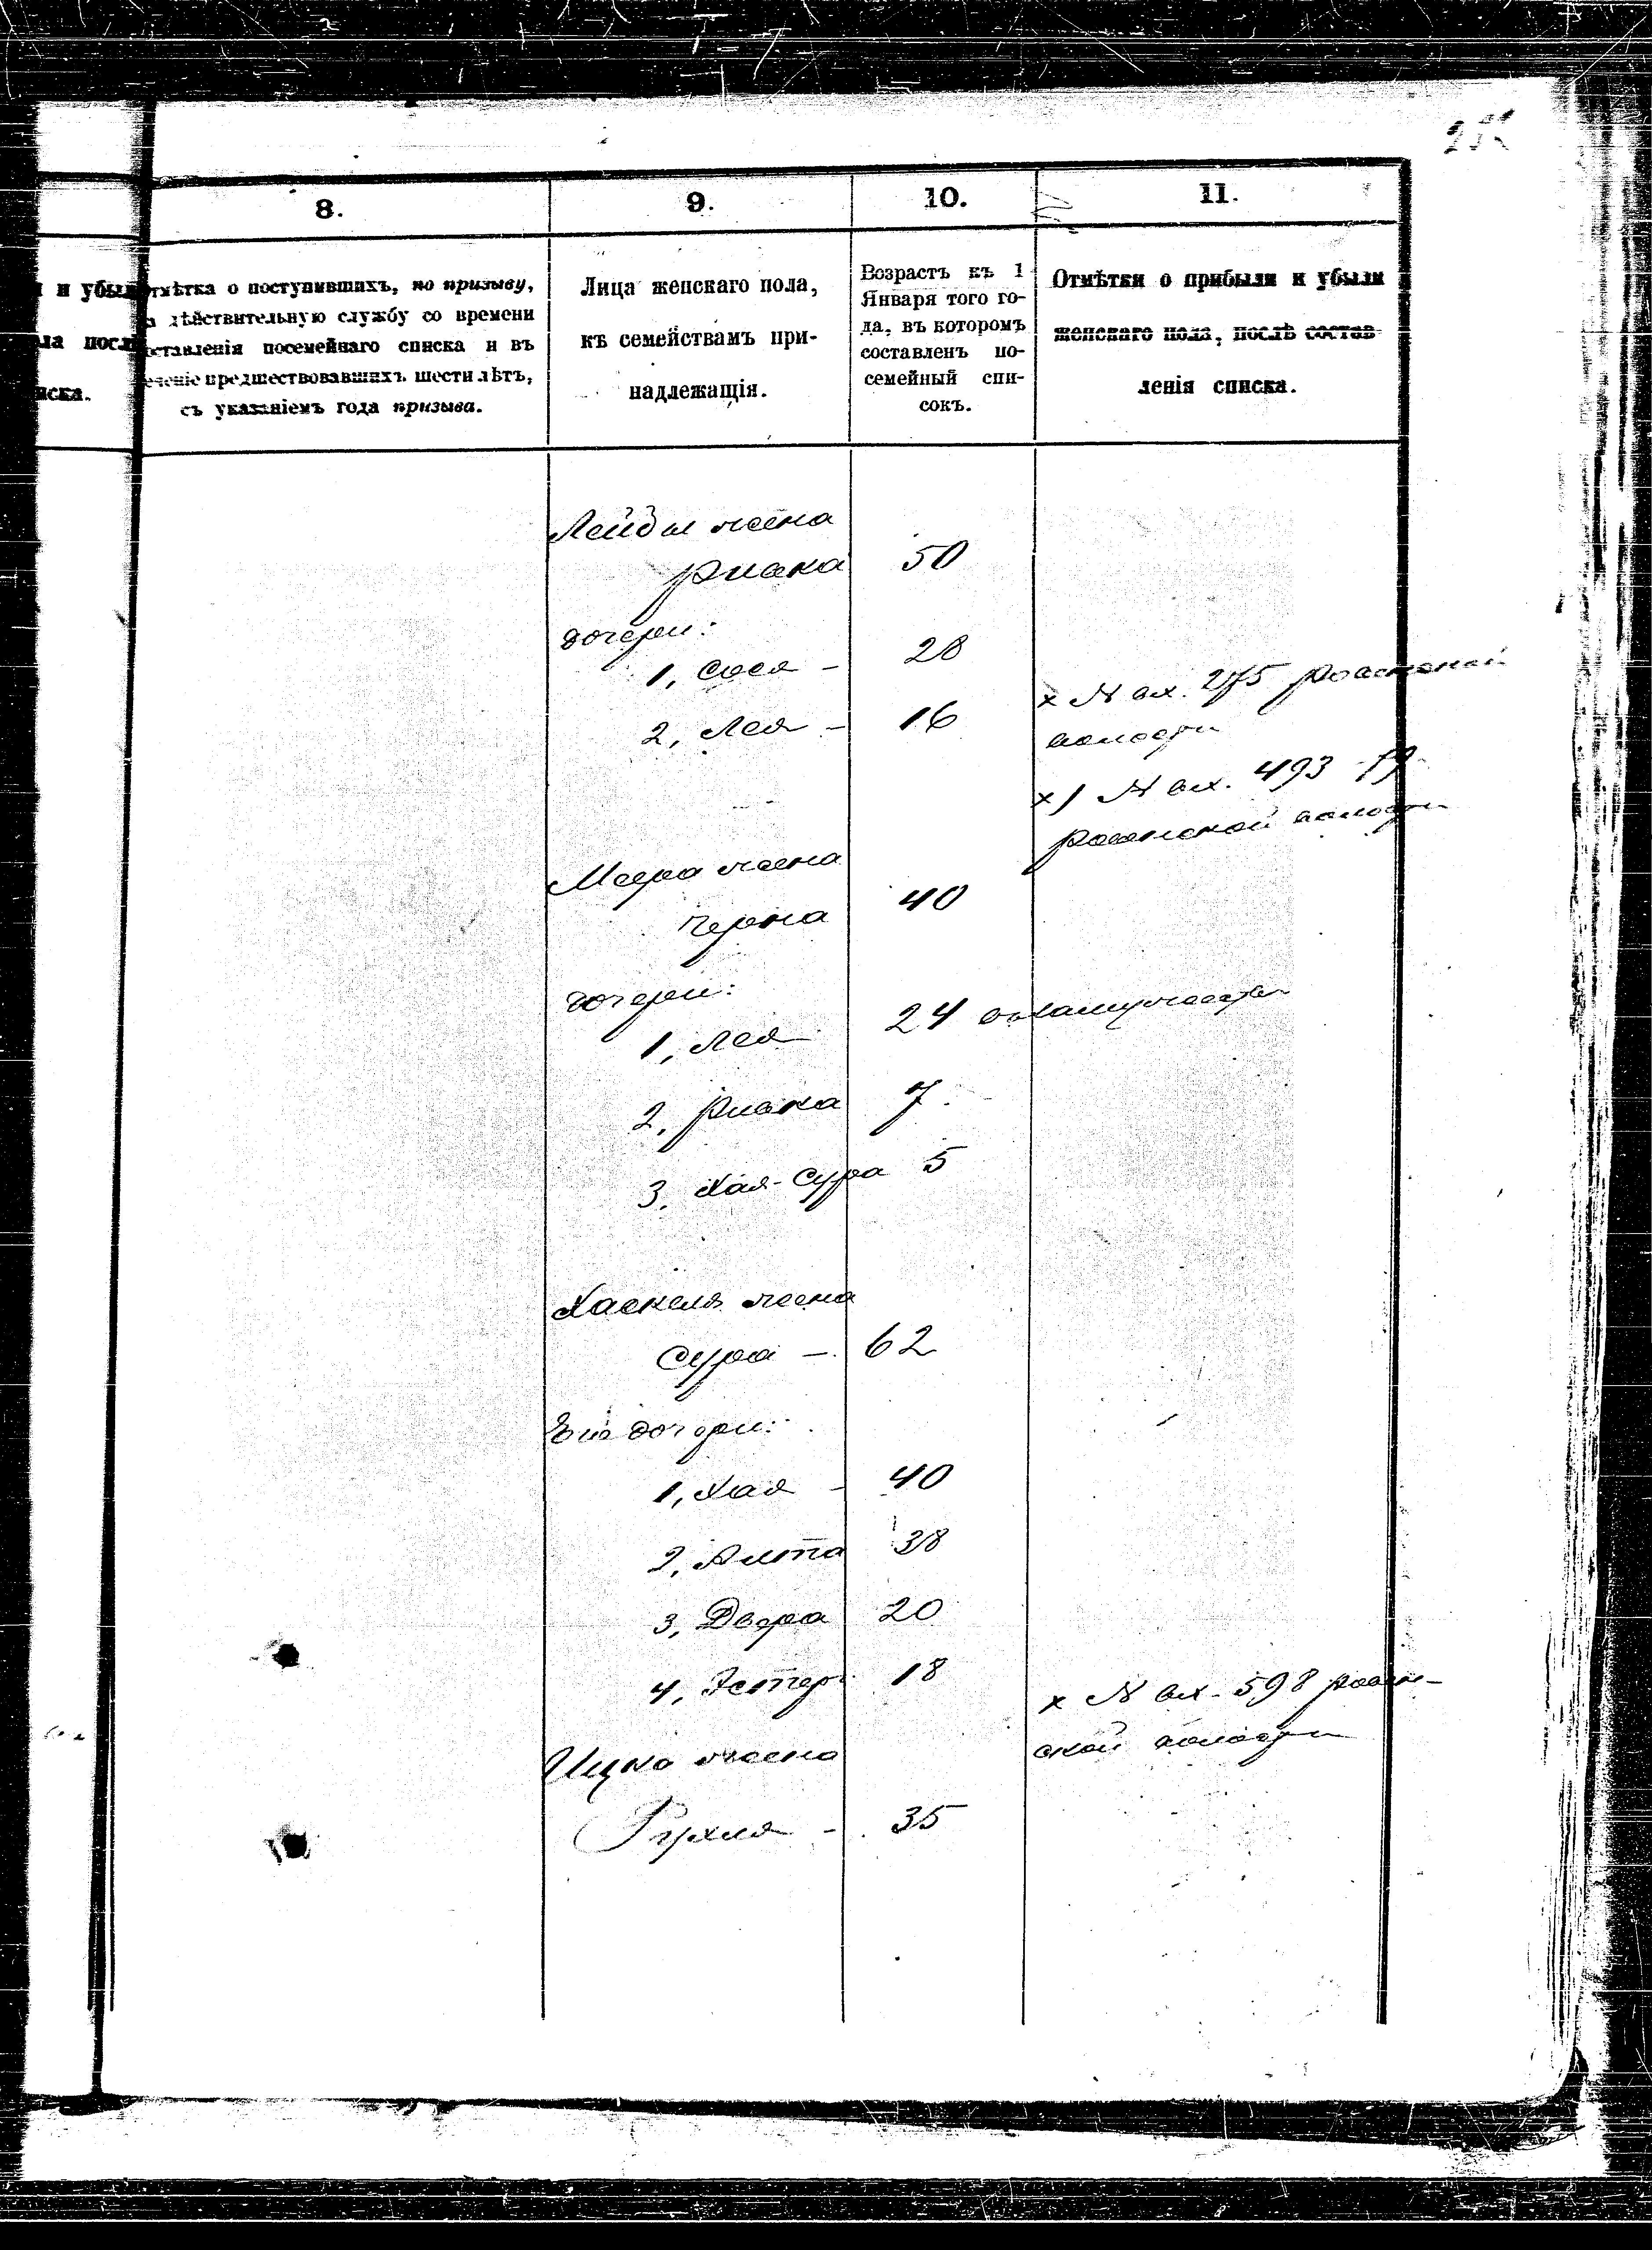 8.
9.
10.
11.
и убыли
ла посл
иска.
отмѣтка о поступившихъ, по призыву,
дѣйствительную службу со времени
составленія посемейнаго списка и въ
теченіе предшествовавшихъ шести лѣтъ,
съ указаніемъ года призыва.
Лица женскаго пола,
къ семействамъ при-
надлежащія.
Возрастъ къ 1
Января того го-
да, въ которомъ
составленъ по-
семейный спи-
сокъ.
Отмѣтки о прибыли и убыли
женскаго пола, послѣ состав-
ленія списка.
жена
Ривка 50
дочери:
1, Сося - 28
2, Лея - 16
х № вх. 275
волости
х) № вх. 493
волости
Меера жена
Черна 40
дочери:
1, Лея 24 въ замужестве
2, Ривка 7
3, Хая-Сура 5
Хаскеля жена
Сура - 62
Его дочери:
1, Хая - 40
2, 38
3, Двера 20
4, Эстер 18
х № вх. 598
ской волости
Ицка жена
Рухля - 35